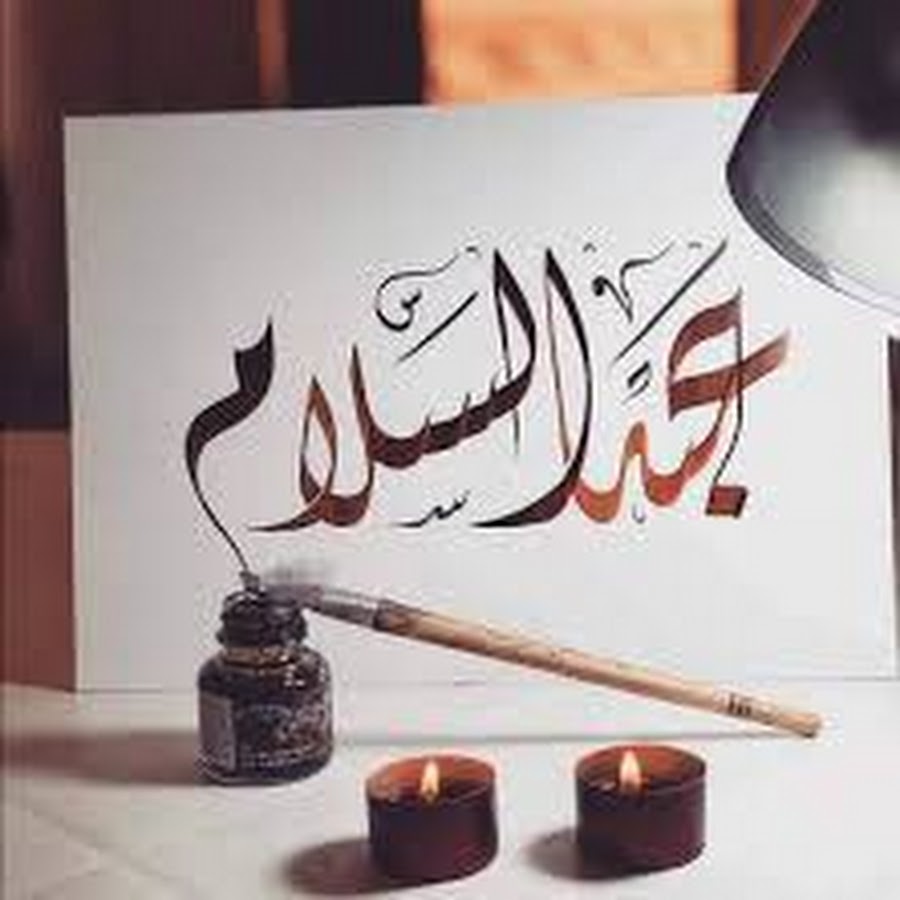 عبد السلام